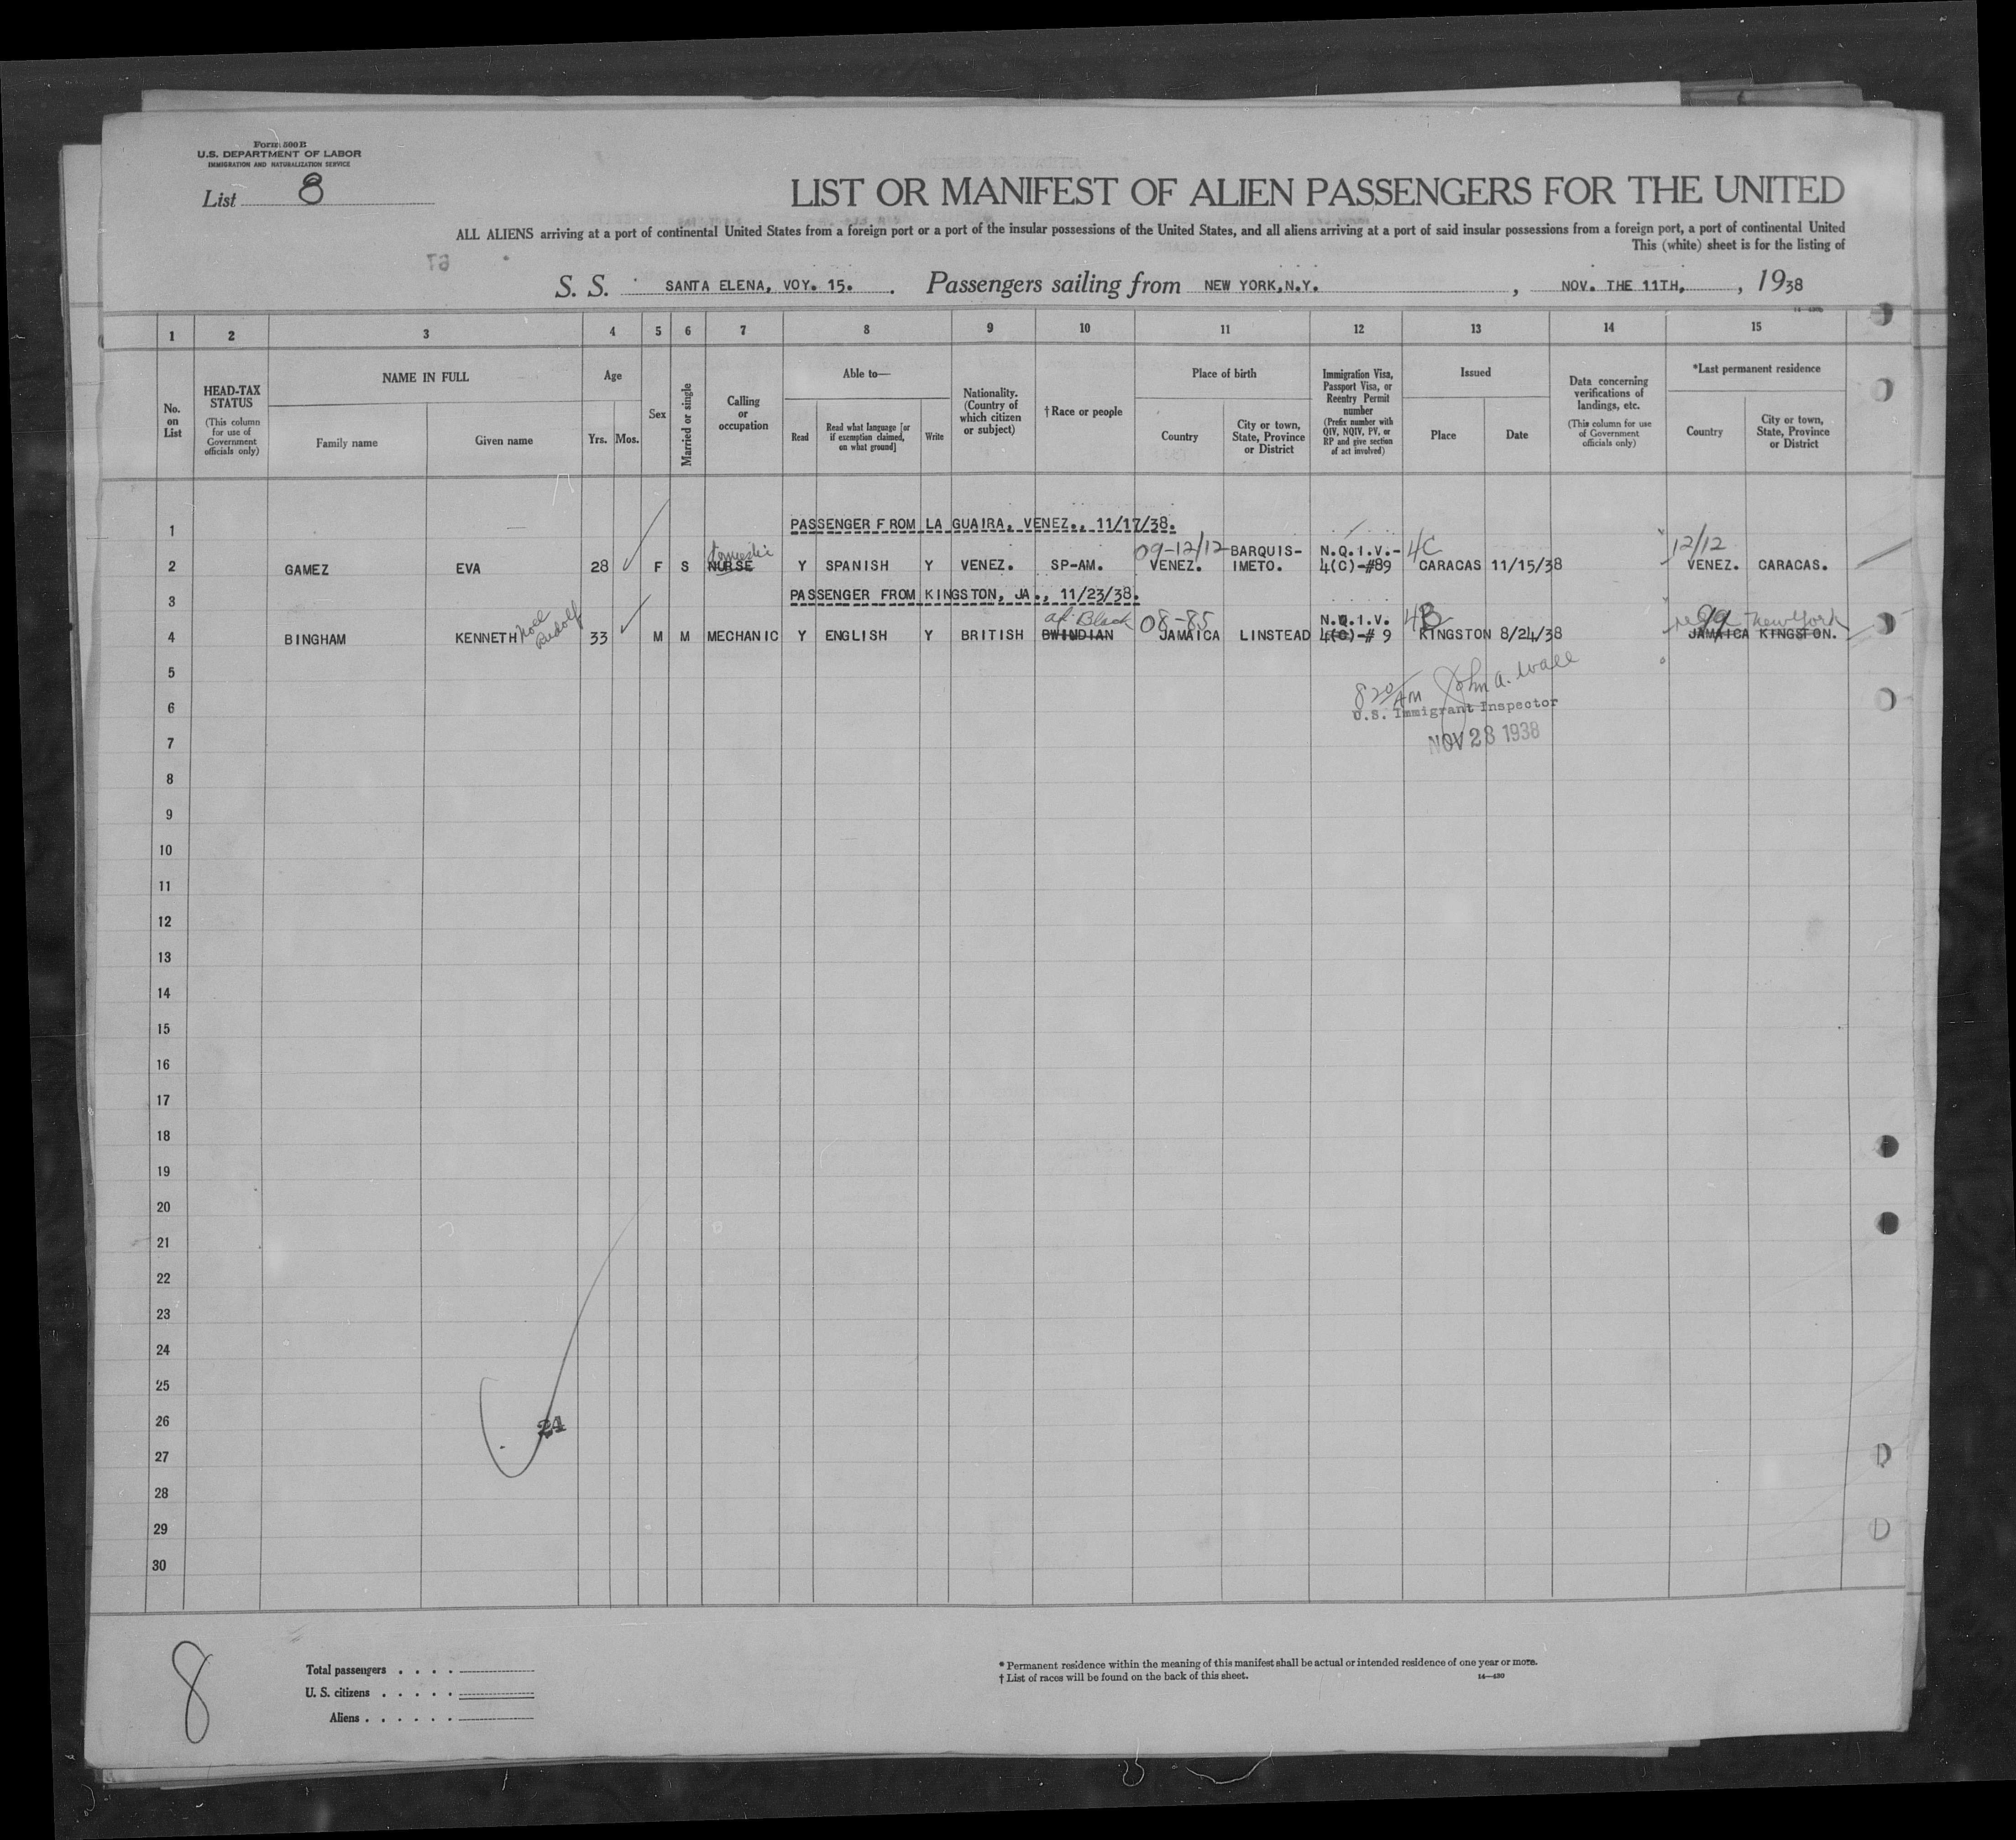 Form 500B
U.S. DEPARTMENT OF LABOR
IMMIGRATION AND NATURALIZATION SERVICE
List 8
LIST OR MANIFEST OF ALIEN PASSENGERS FOR THE UNITED
ALL ALIENS arriving at a port of continental United States from a foreign port or a port of the insular possessions of the United States, and all aliens arriving at a port of said insular possessions from a foreign port, a port of continental United
This (white) sheet is for the listing of
S. S. SANTA ELENA, VOY. 15. Passengers sailing from NEW YORK,N.Y. , NOV. THE 11TH, , 1938
1 2 3 4 5 6 7 8 9 10 11 12 13 14 15
No. on List
HEAD-TAX STATUS
(This column for use of Government officials only)
NAME IN FULL
Family name
Given name
Age
Yrs. Mos.
Sex
Married or single
Calling or occupation
Able to—
Read
Read what language [or if exemption claimed, on what ground]
Write
Nationality. (Country of which citizen or subject)
† Race or people
Place of birth
Country
City or town, State, Province or District
Immigration Visa, Passport Visa, or Reentry Permit number
(Prefix number with QIV, NQIV, PV, or RP and give section of act involved)
Issued
Place
Date
Data concerning verifications of landings, etc.
(This column for use of Government officials only)
*Last permanent residence
Country
City or town, State, Province or District
1 PASSENGER FROM LA GUAIRA, VENEZ., 11/17/38.
domestic 09-12/12 BARQUIS- N.Q.I.V.- 4C 12/12
2 GAMEZ EVA 28 F S NURSE Y SPANISH Y VENEZ. SP-AM. VENEZ. IMETO. 4(C)-#89 CARACAS 11/15/38 VENEZ. CARACAS.
3 PASSENGER FROM KINGSTON, JA., 11/23/38.
Noel Rudolf af. Black 08-85 N.Q.I.V. 4B 99 New York
4 BINGHAM KENNETH 33 M M MECHANIC Y ENGLISH Y BRITISH BWINDIAN JAMAICA LINSTEAD 4(C)-# 9 KINGSTON 8/24/38 JAMAICA KINGSTON.
5
820 AM John A. Wall
6 U.S. Immigrant Inspector
7 NOV 28 1938
8
9
10
11
12
13
14
15
16
17
18
19
20
21
22
23
24
25
26 24
27
28
29
30
8
Total passengers . . . .
U. S. citizens . . . . .
Aliens . . . . . .
* Permanent residence within the meaning of this manifest shall be actual or intended residence of one year or more.
† List of races will be found on the back of this sheet. 14—430